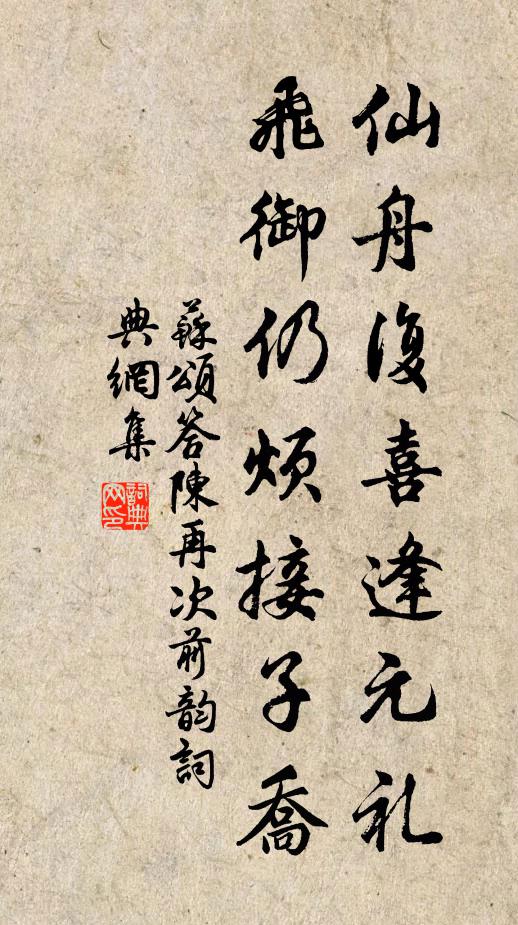 仙舟復喜逢元礼
飛御仍煩接子喬
蘇頌答陳再次前韵詞
典網集
詞典
网印